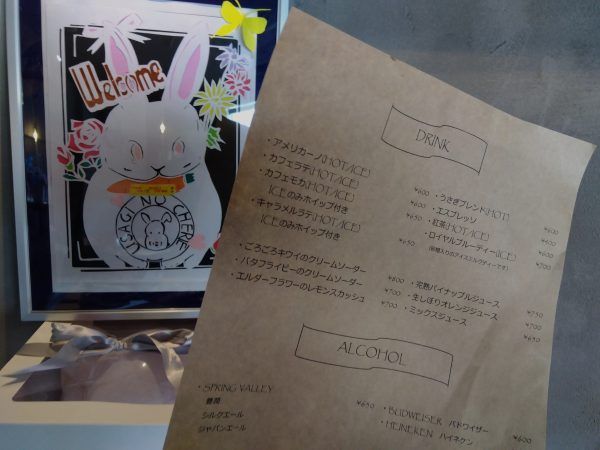 Welcome
USAGI NO CHERIE
DRINK
・アメリカーノ(HOT/ICE) ¥600
・カフェラテ(HOT/ICE) ¥650
・カフェモカ(HOT/ICE)
ICEのみホイップ付き
・キャラメルラテ(HOT/ICE) ¥650
ICEのみホイップ付き
・うさぎブレンド(HOT) ¥600
・エスプレッソ ¥600
・紅茶(HOT/ICE) ¥600
・ロイヤルブルーティー(ICE) ¥700
・ごろごろキウイのクリームソーダー ¥600
・バタフライピーのクリームソーダー ¥700
・エルダーフラワーのレモンスカッシュ ¥700
・完熟パイナップルジュース ¥750
・生しぼりオレンジジュース ¥700
・ミックスジュース ¥650
ALCOHOL
・SPRING VALLEY ¥650
豊潤
シルクエール
ジャパンエール
・BUDWEISER バドワイザー ¥600
・HEINEKEN ハイネケン